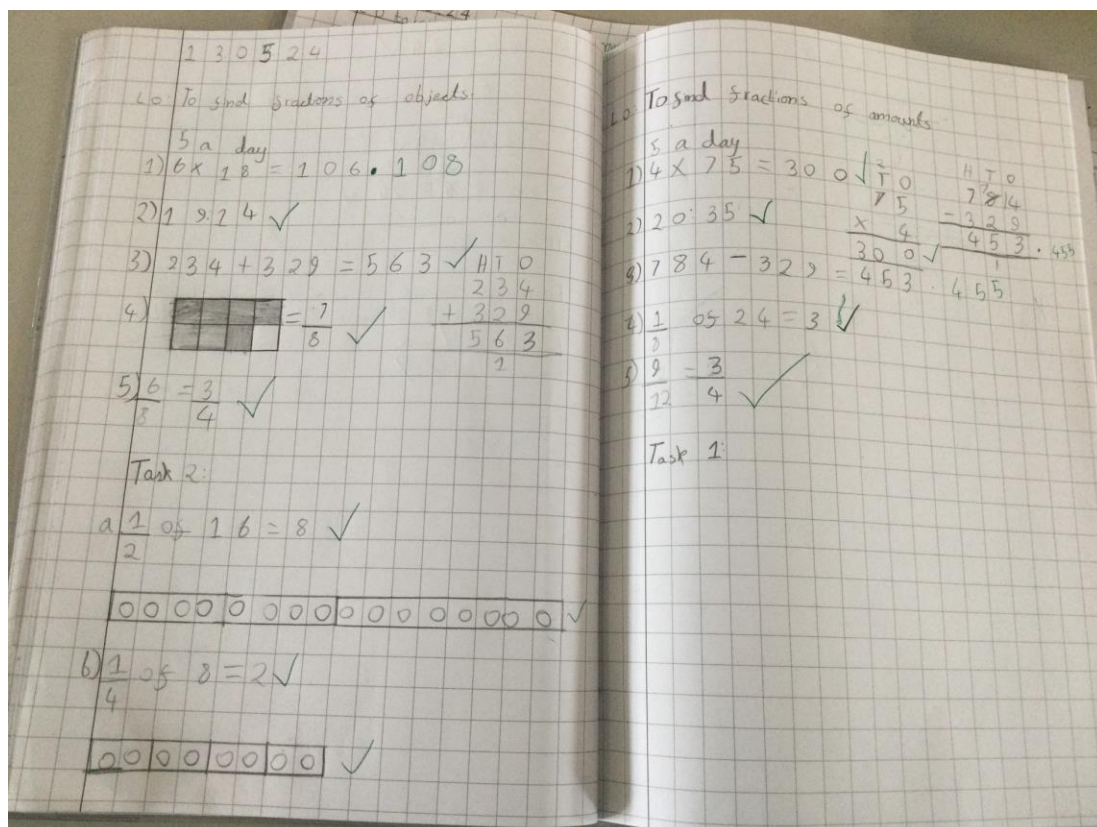 1 3 0 5 2 4
LO: To find fractions of objects.
5 a day
1) 6 x 18 = 1 0 6 . 1 0 8
2) 1 9 : 2 4 ✓
3) 2 3 4 + 3 2 9 = 5 6 3 ✓
H T O
2 3 4
+ 3 2 9
5 6 3
1
4) = 7/8 ✓
5) 6/8 = 3/4 ✓
Task 2:
a 1/2 of 1 6 = 8 ✓
0 0 0 0 0 0 0 0 0 0 0 0 0 0 0 0 ✓
b) 1/4 of 8 = 2 ✓
0 0 0 0 0 0 0 0 ✓
LO: To find fractions of amounts
5 a day
1) 4 X 7 5 = 3 0 0 ✓
2
T O
7 5
x 4
3 0 0 ✓
2) 2 0 : 3 5 ✓
3) 7 8 4 - 3 2 9 = 4 5 3 . 4 5 5
H T O
7
7 8 14
- 3 2 9
4 5 3 . 455
1
4) 1/8 of 2 4 = 3 ✓
5) 9/12 = 3/4 ✓
Task 1: